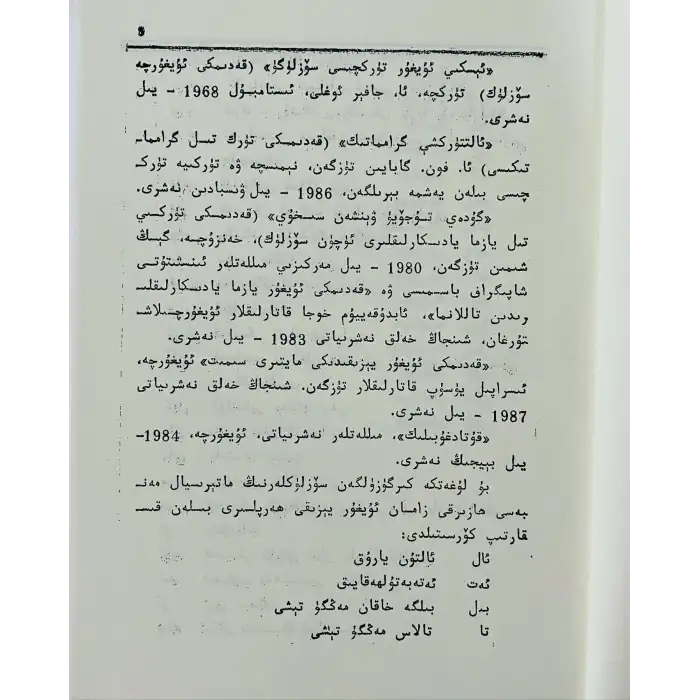 5
«ئېسكىي ئۇيغۇر تۈركچىسى سۆزلۈگۈ» (قەدىمكى ئۇيغۇرچە
سۆزلۈك) تۈركچە، ئا، جافېر ئوغلى، ئىستامبۇل 1968 - يىل
نەشرى.
«ئالتتۈركشې گرامماتىك» (قەدىمكى تۈرك تىل گرامما-
تىكىسى) ئا. فون. گابايىن تۈزگەن، نېمىسچە ۋە تۈركىيە تۈرك-
چىسى بىلەن يەشمە بېرىلگەن، 1986 - يىل ۋىسبادىن نەشرى.
«گۇدەي تۇجۆيۈ ۋېنشەن سىخۇي» (قەدىمكى تۈركىي
تىل يازما يادىكارلىقلىرى ئۈچۈن سۆزلۈك)، خەنزۇچە، گېڭ
شىمىن تۈزگەن، 1980 - يىل مەركىزىي مىللەتلەر ئىنستىتۇتى
شاپىگراف باسمىسى ۋە «قەدىمكى ئۇيغۇر يازما يادىكارلىقلى-
رىدىن تاللانما»، ئابدۇقەييۇم خوجا قاتارلىقلار ئۇيغۇرچىلاش-
تۇرغان، شىنجاڭ خەلق نەشرىياتى 1983 - يىل نەشرى.
«قەدىمكى ئۇيغۇر يېزىقىدىكى مايتىرى سىمىت» ئۇيغۇرچە،
ئىسراپىل يۈسۈپ قاتارلىقلار تۈزگەن. شىنجاڭ خەلق نەشرىياتى
1987 - يىل نەشرى.
«قۇتادغۇبىلىك»، مىللەتلەر نەشرىياتى، ئۇيغۇرچە، 1984-
يىل بېيجىڭ نەشرى.
بۇ لۇغەتكە كىرگۈزۈلگەن سۆزلۈكلەرنىڭ ماتېرىيال مەن-
بەسى ھازىرقى زامان ئۇيغۇر يېزىقى ھەرپلىرى بىلەن قىس-
قارتىپ كۆرسىتىلدى:
ئال ئالتۇن يارۇق
ئەت ئەتەبەتۇلھەقايىق
بىل بىلگە خاقان مەڭگۈ تېشى
تا تالاس مەڭگۈ تېشى